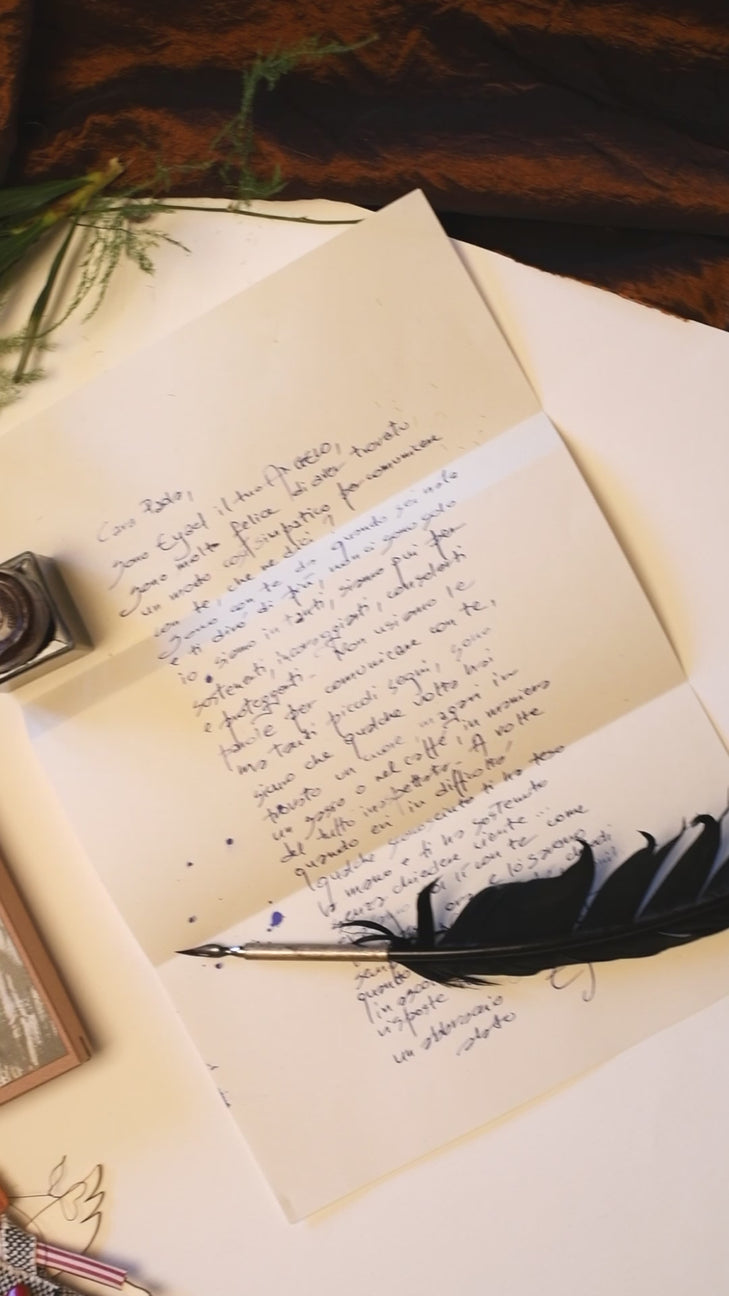 Caro Paolo,
sono Eyael il tuo ANGELO,
sono molto felice di aver trovato
un modo così simpatico per comunicare
con te, che ne dici?
Sono con te da quando sei nato
e ti dirò di più, non ci sono solo
io siamo in tanti, siamo qui per
sostenerti, incoraggiarti, consolarti
e proteggerti. Non usiamo le
parole per comunicare con te,
ma tanti piccoli segni, sono
sicuro che qualche volta hai
trovato un cuore, magari in
un sasso o nel caffè, in maniera
del tutto inaspettata. A volte
quando eri in difficoltà
qualche sconosciuto ti ha teso
la mano e ti ha sostenuto
senza chiedere niente
lì con te come
ora e lo saremo
quando
in
risposte
un abbraccio
alato